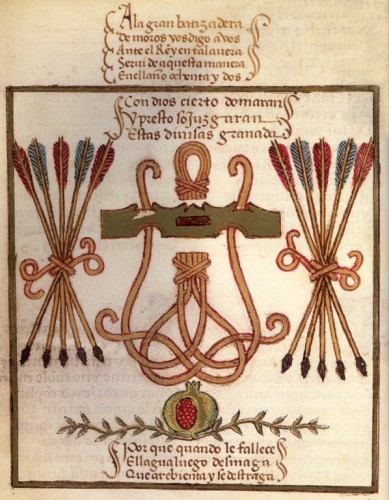 A la gran batizadera
De moros yos digo a vos
Ante el Rey en talauera
Serui de aquesta manera
Enel año ochenta y dos
Con dios cierto domaran
Y presto sojuzgaran
Estas diuisas granada
Por que quando le fallece
Ellagua luego desmaga
Que arebienta y se destraga